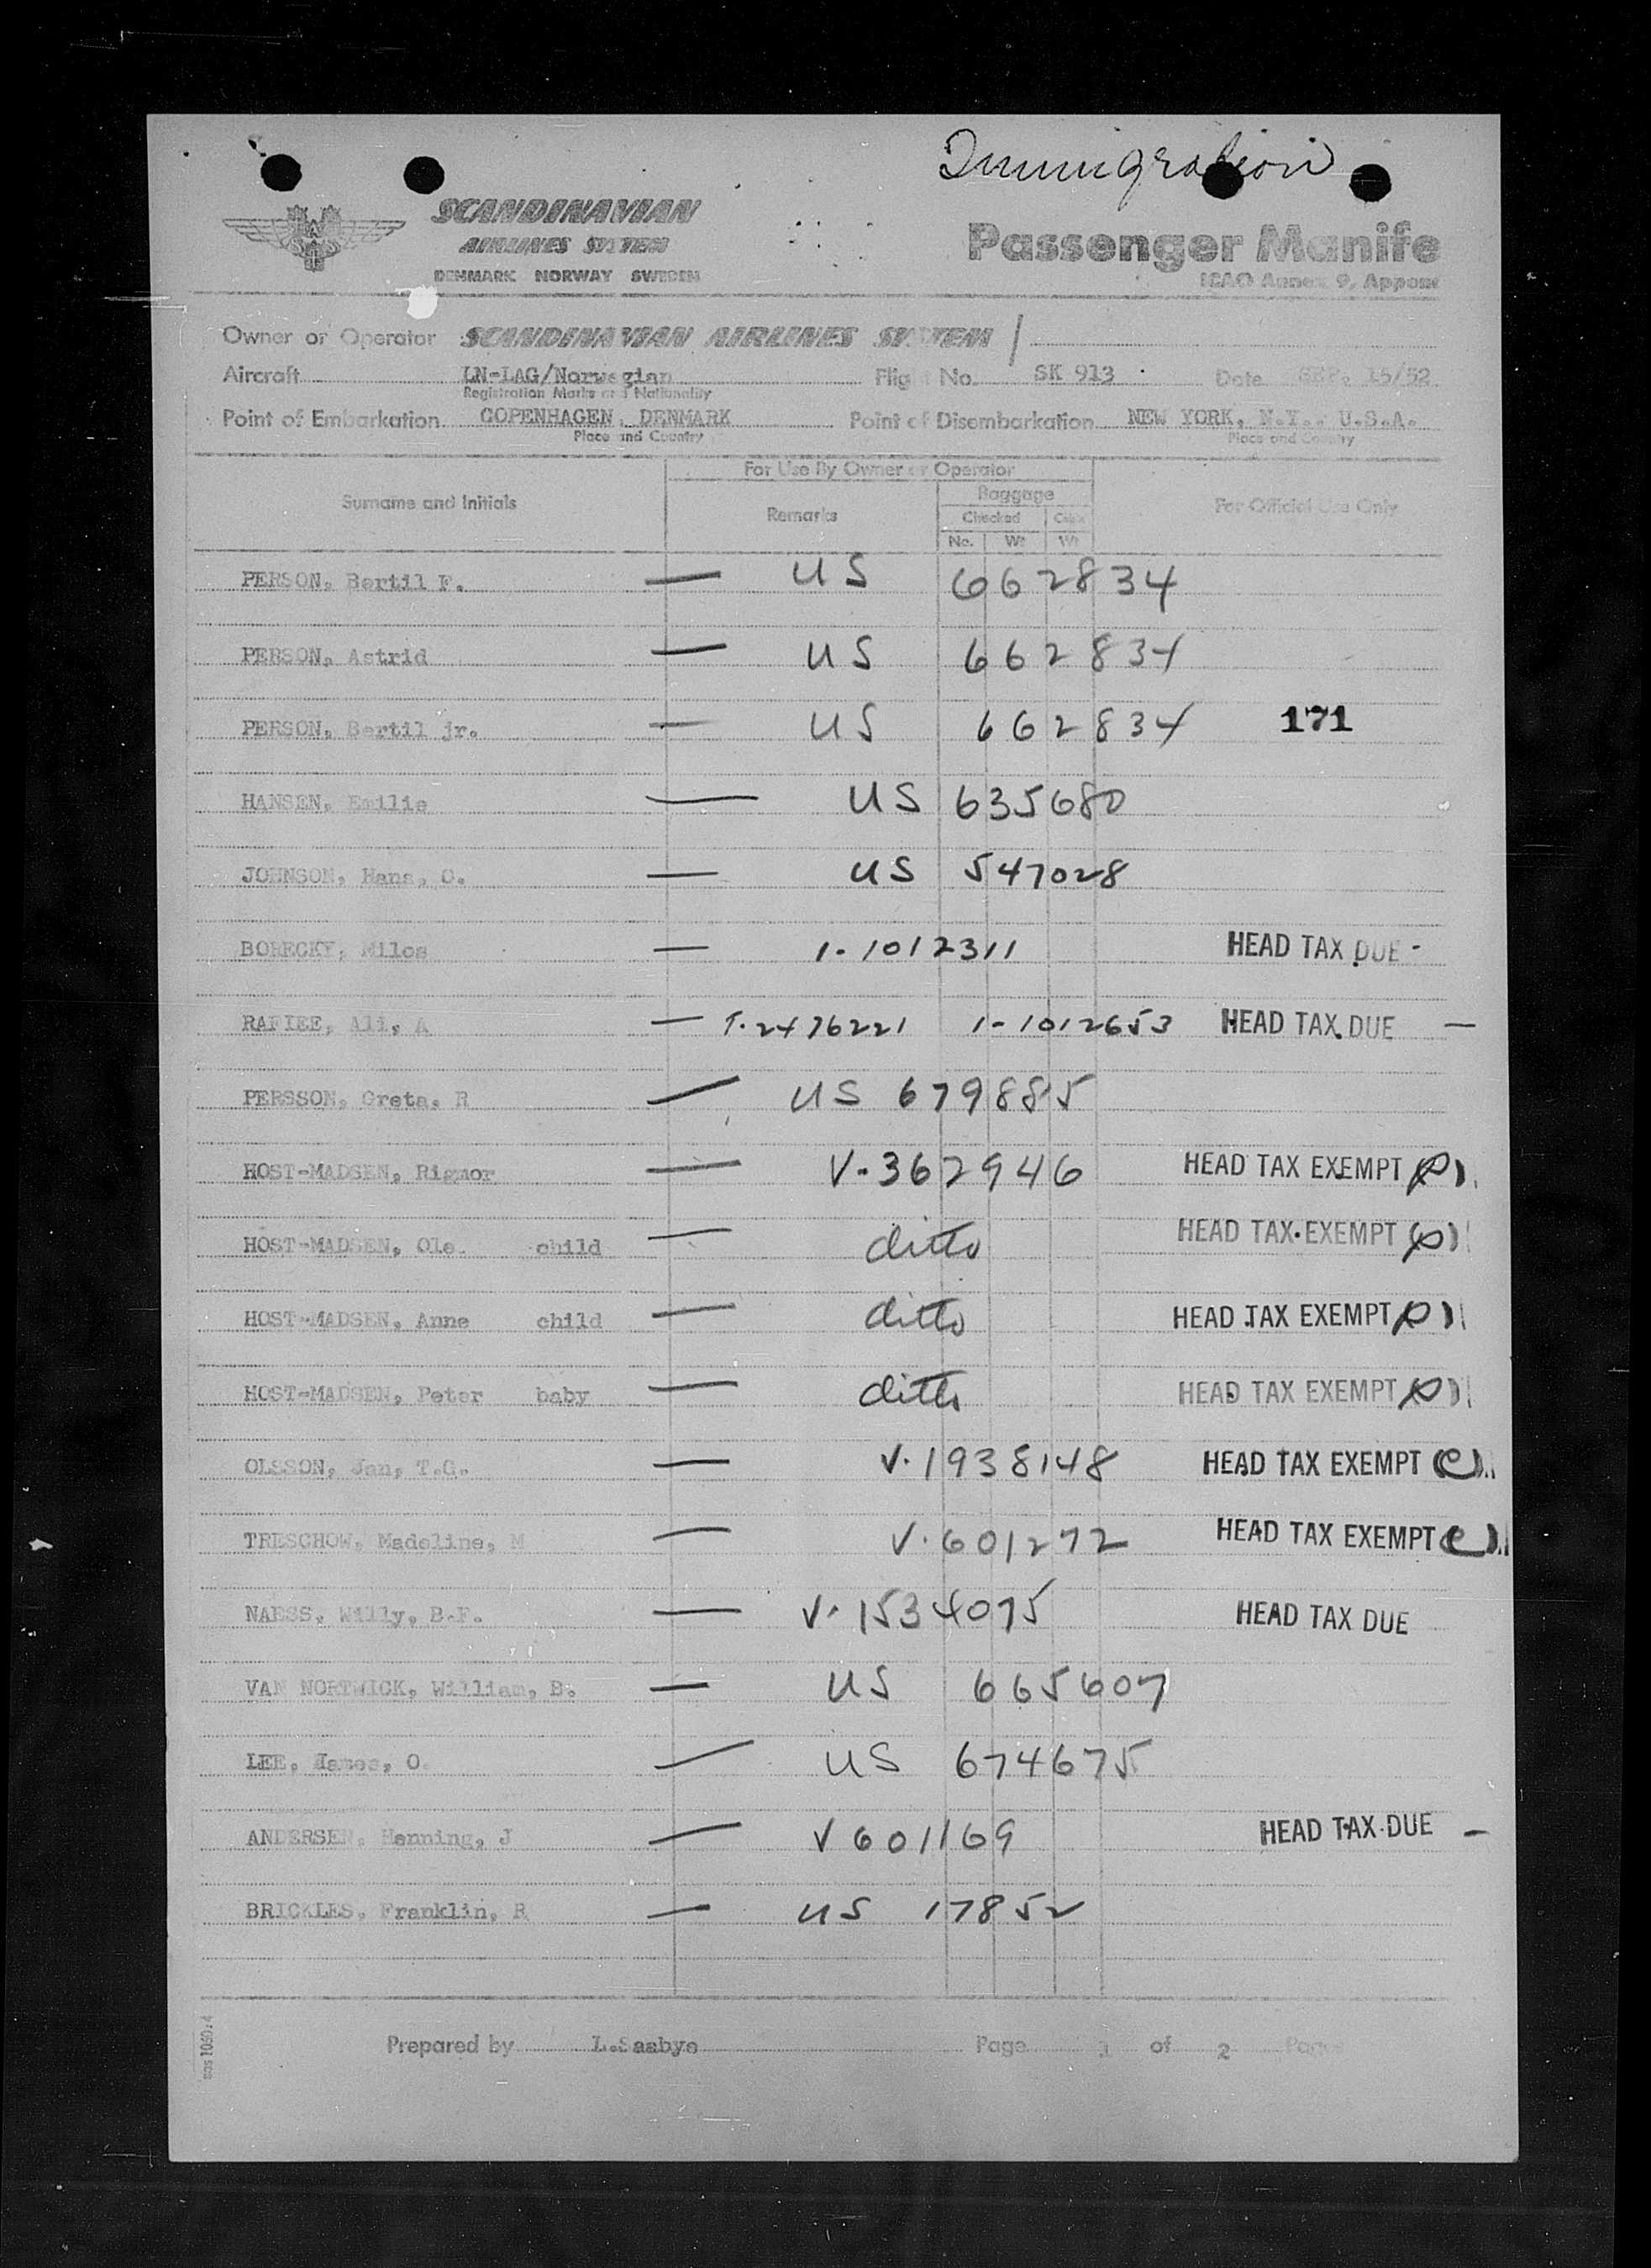 Immigration
SCANDINAVIAN
AIRLINES SYSTEM
DENMARK NORWAY SWEDEN
Passenger Manife
ICAO Annex 9, Appen
Owner or Operator SCANDINAVIAN AIRLINES SYSTEM /
Aircraft LN-LAG/Norwegian Flight No. SK 913 Date SEP. 15/52
Registration Marks and Nationality
Point of Embarkation COPENHAGEN, DENMARK Point of Disembarkation NEW YORK, N.Y., U.S.A.
Place and Country Place and Country
For Use By Owner or Operator
Surname and Initials Remarks Baggage For Official Use Only
Checked Cabin
No. Wt Wt
PERSON, Bertil F. — US 662834
PERSON, Astrid — US 662834
PERSON, Bertil jr. — US 662834 171
HANSEN, Emilie — US 635680
JOHNSON, Hans, O. — US 547028
BORECKY, Milos — 1-1012311 HEAD TAX DUE -
RAFIEE, Ali, A — T-2476221 1-1012653 HEAD TAX DUE —
PERSSON, Greta, R — US 679885
HOST-MADSEN, Rigmor — V-362946 HEAD TAX EXEMPT
HOST-MADSEN, Ole. child — ditto HEAD TAX EXEMPT
HOST-MADSEN, Anne child — ditto HEAD TAX EXEMPT
HOST-MADSEN, Peter baby — ditto HEAD TAX EXEMPT
OLSSON, Jan, T.G. — V-1938148 HEAD TAX EXEMPT
TRESCHOW, Madeline, M — V-601272 HEAD TAX EXEMPT
NAESS, Willy, B.F. — V-1534075 HEAD TAX DUE
VAN NORTWICK, William, B. — US 665607
LEE, O. — US 674675
ANDERSEN, Henning, J — V 601169 HEAD TAX DUE —
BRICKLES, Franklin, R — US 17852
Prepared by L.Saabye Page 1 of 2 Pages
sas 1060:4